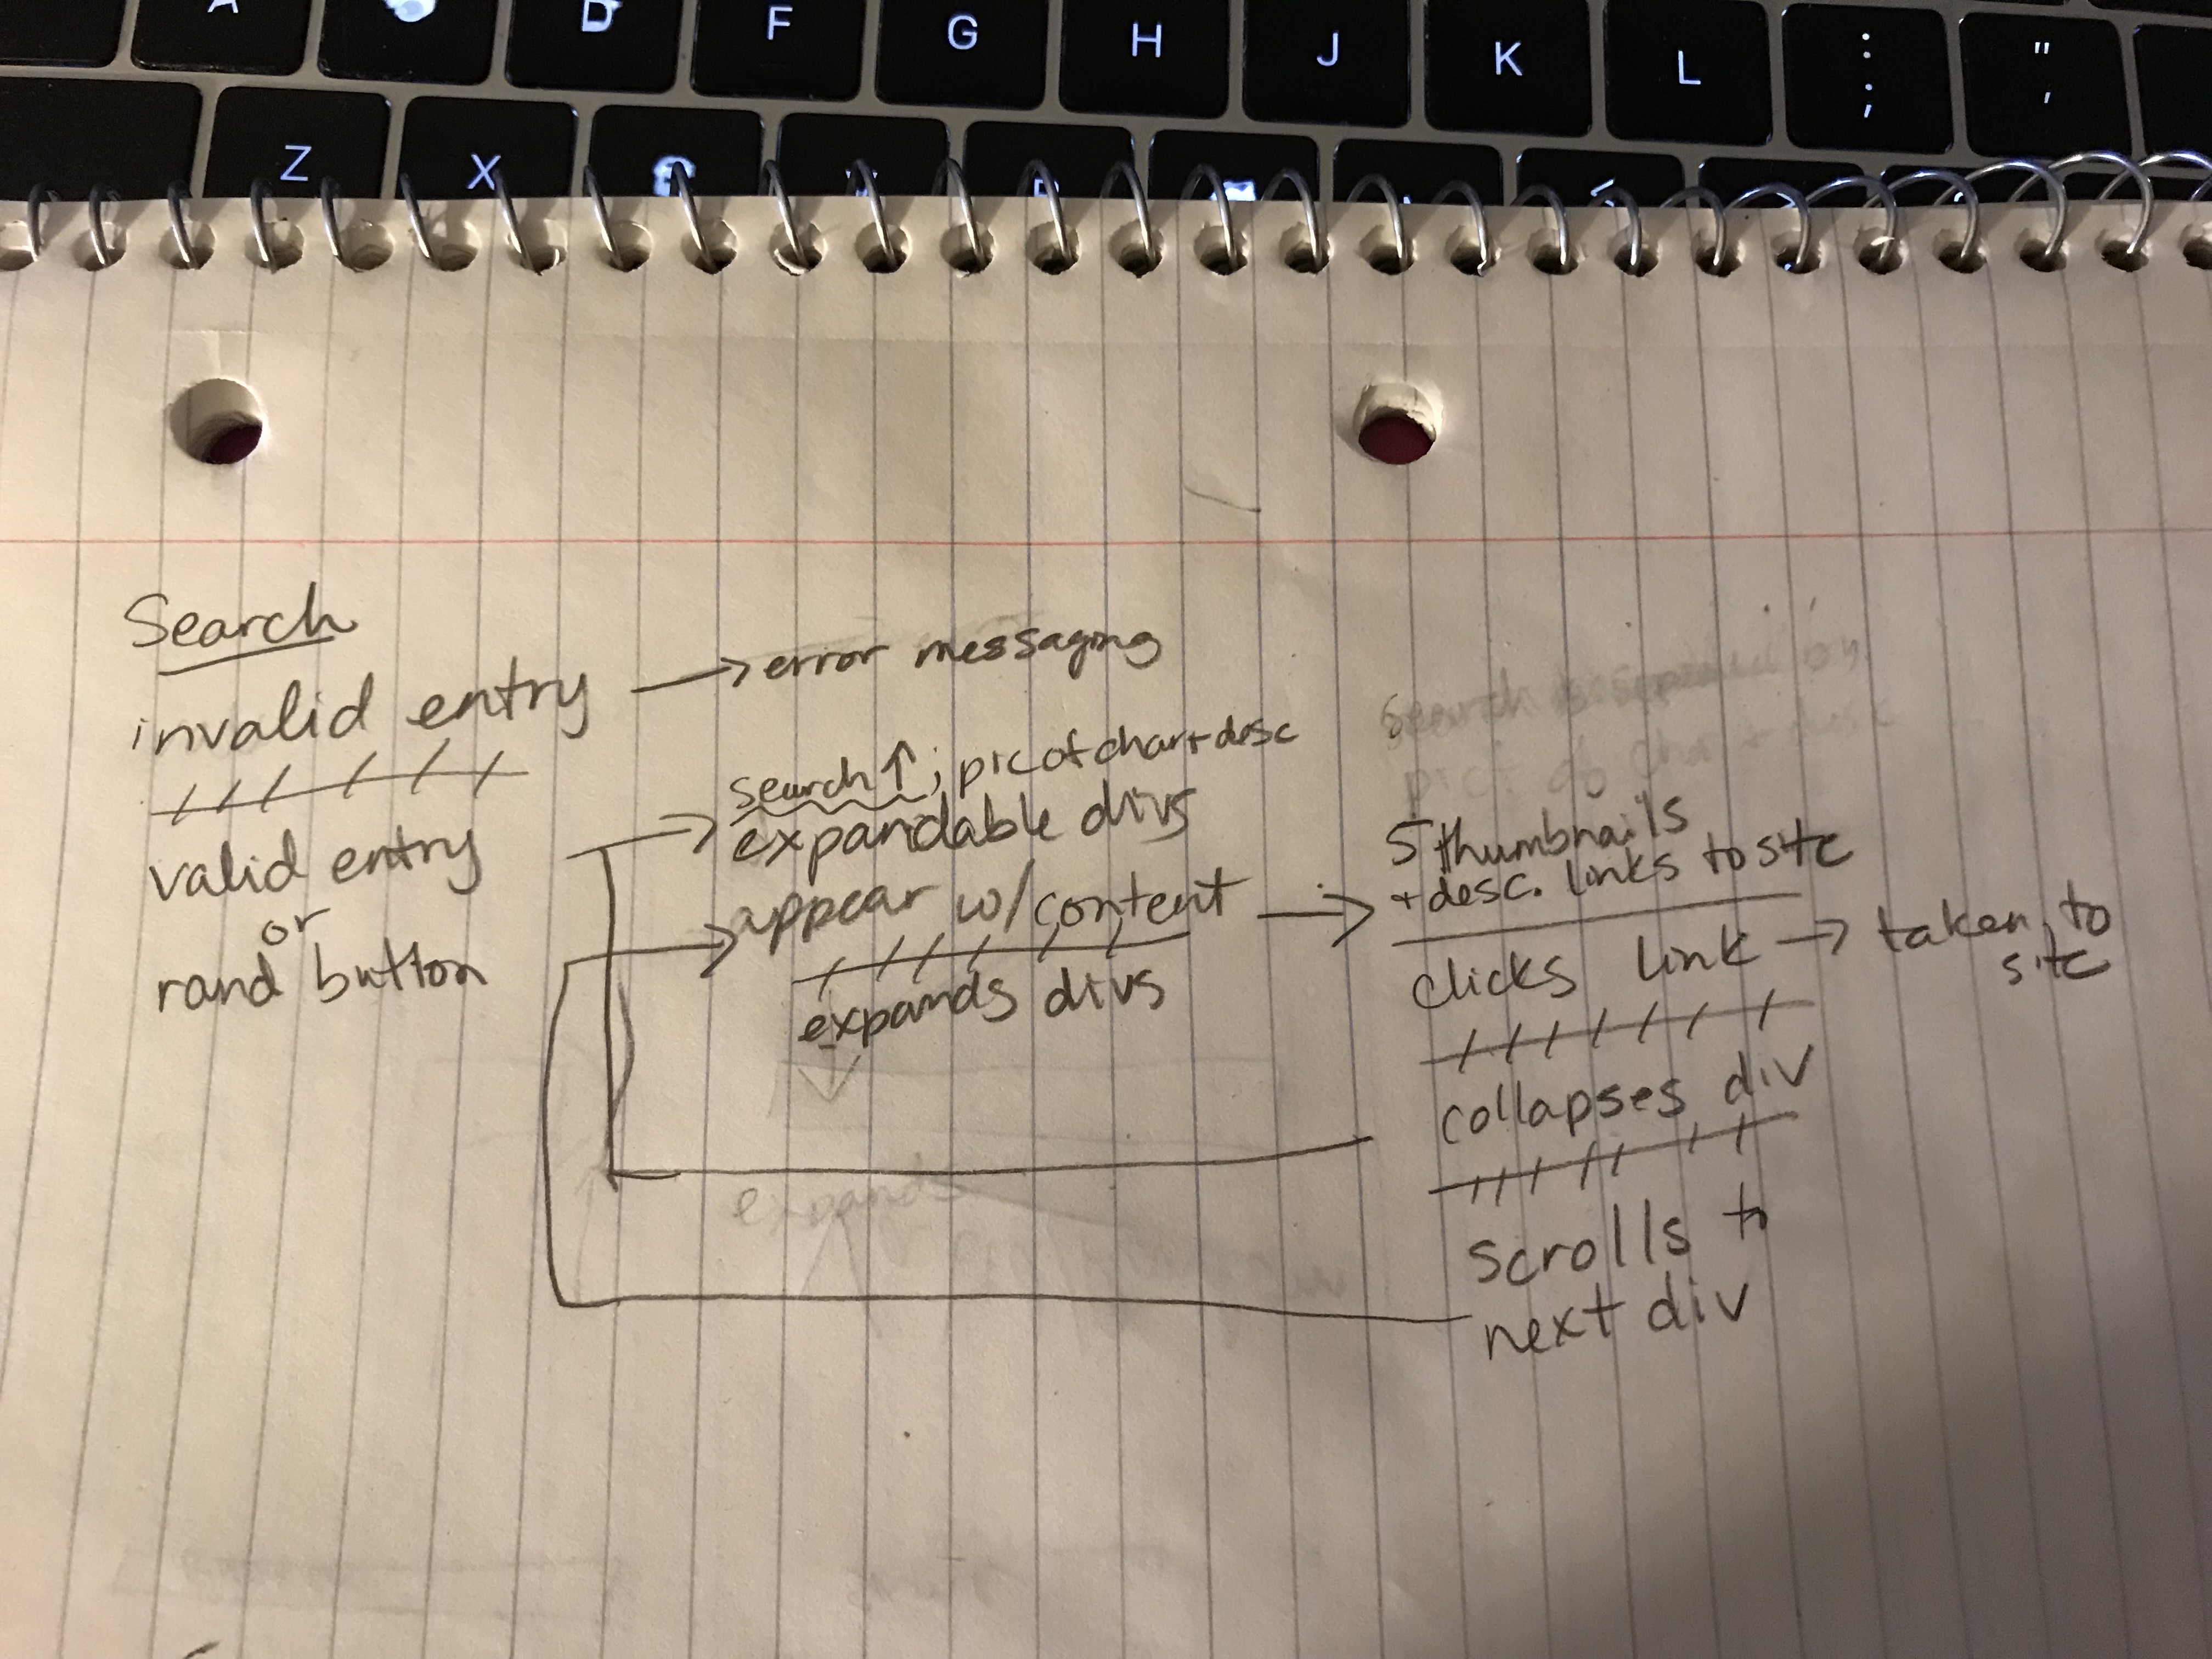 Search
invalid entry → error messaging
valid entry
or
rand button
search ↑ ; pic of char + desc
→ expandable divs
→ appear w/content →
expands divs
5 thumbnails
+ desc. links to site
clicks link → taken to
site
collapses div
scrolls to
next div
Z
X
F
G
H
J
K
L
: ;
" '